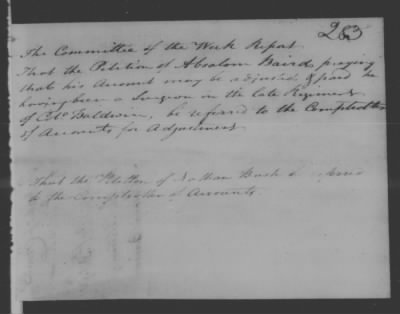 263
The Committee of the Week Report
That the Petition of Absalom Baird, praying
that his Account may be adjusted, & paid he
having been a Surgeon in the late Regiment
of Colo Baldwin, be referred to the Comptroller
of Accounts for Adjustment
That the Petition of Nathan Bush be referred
to the Comptroller of Accounts.